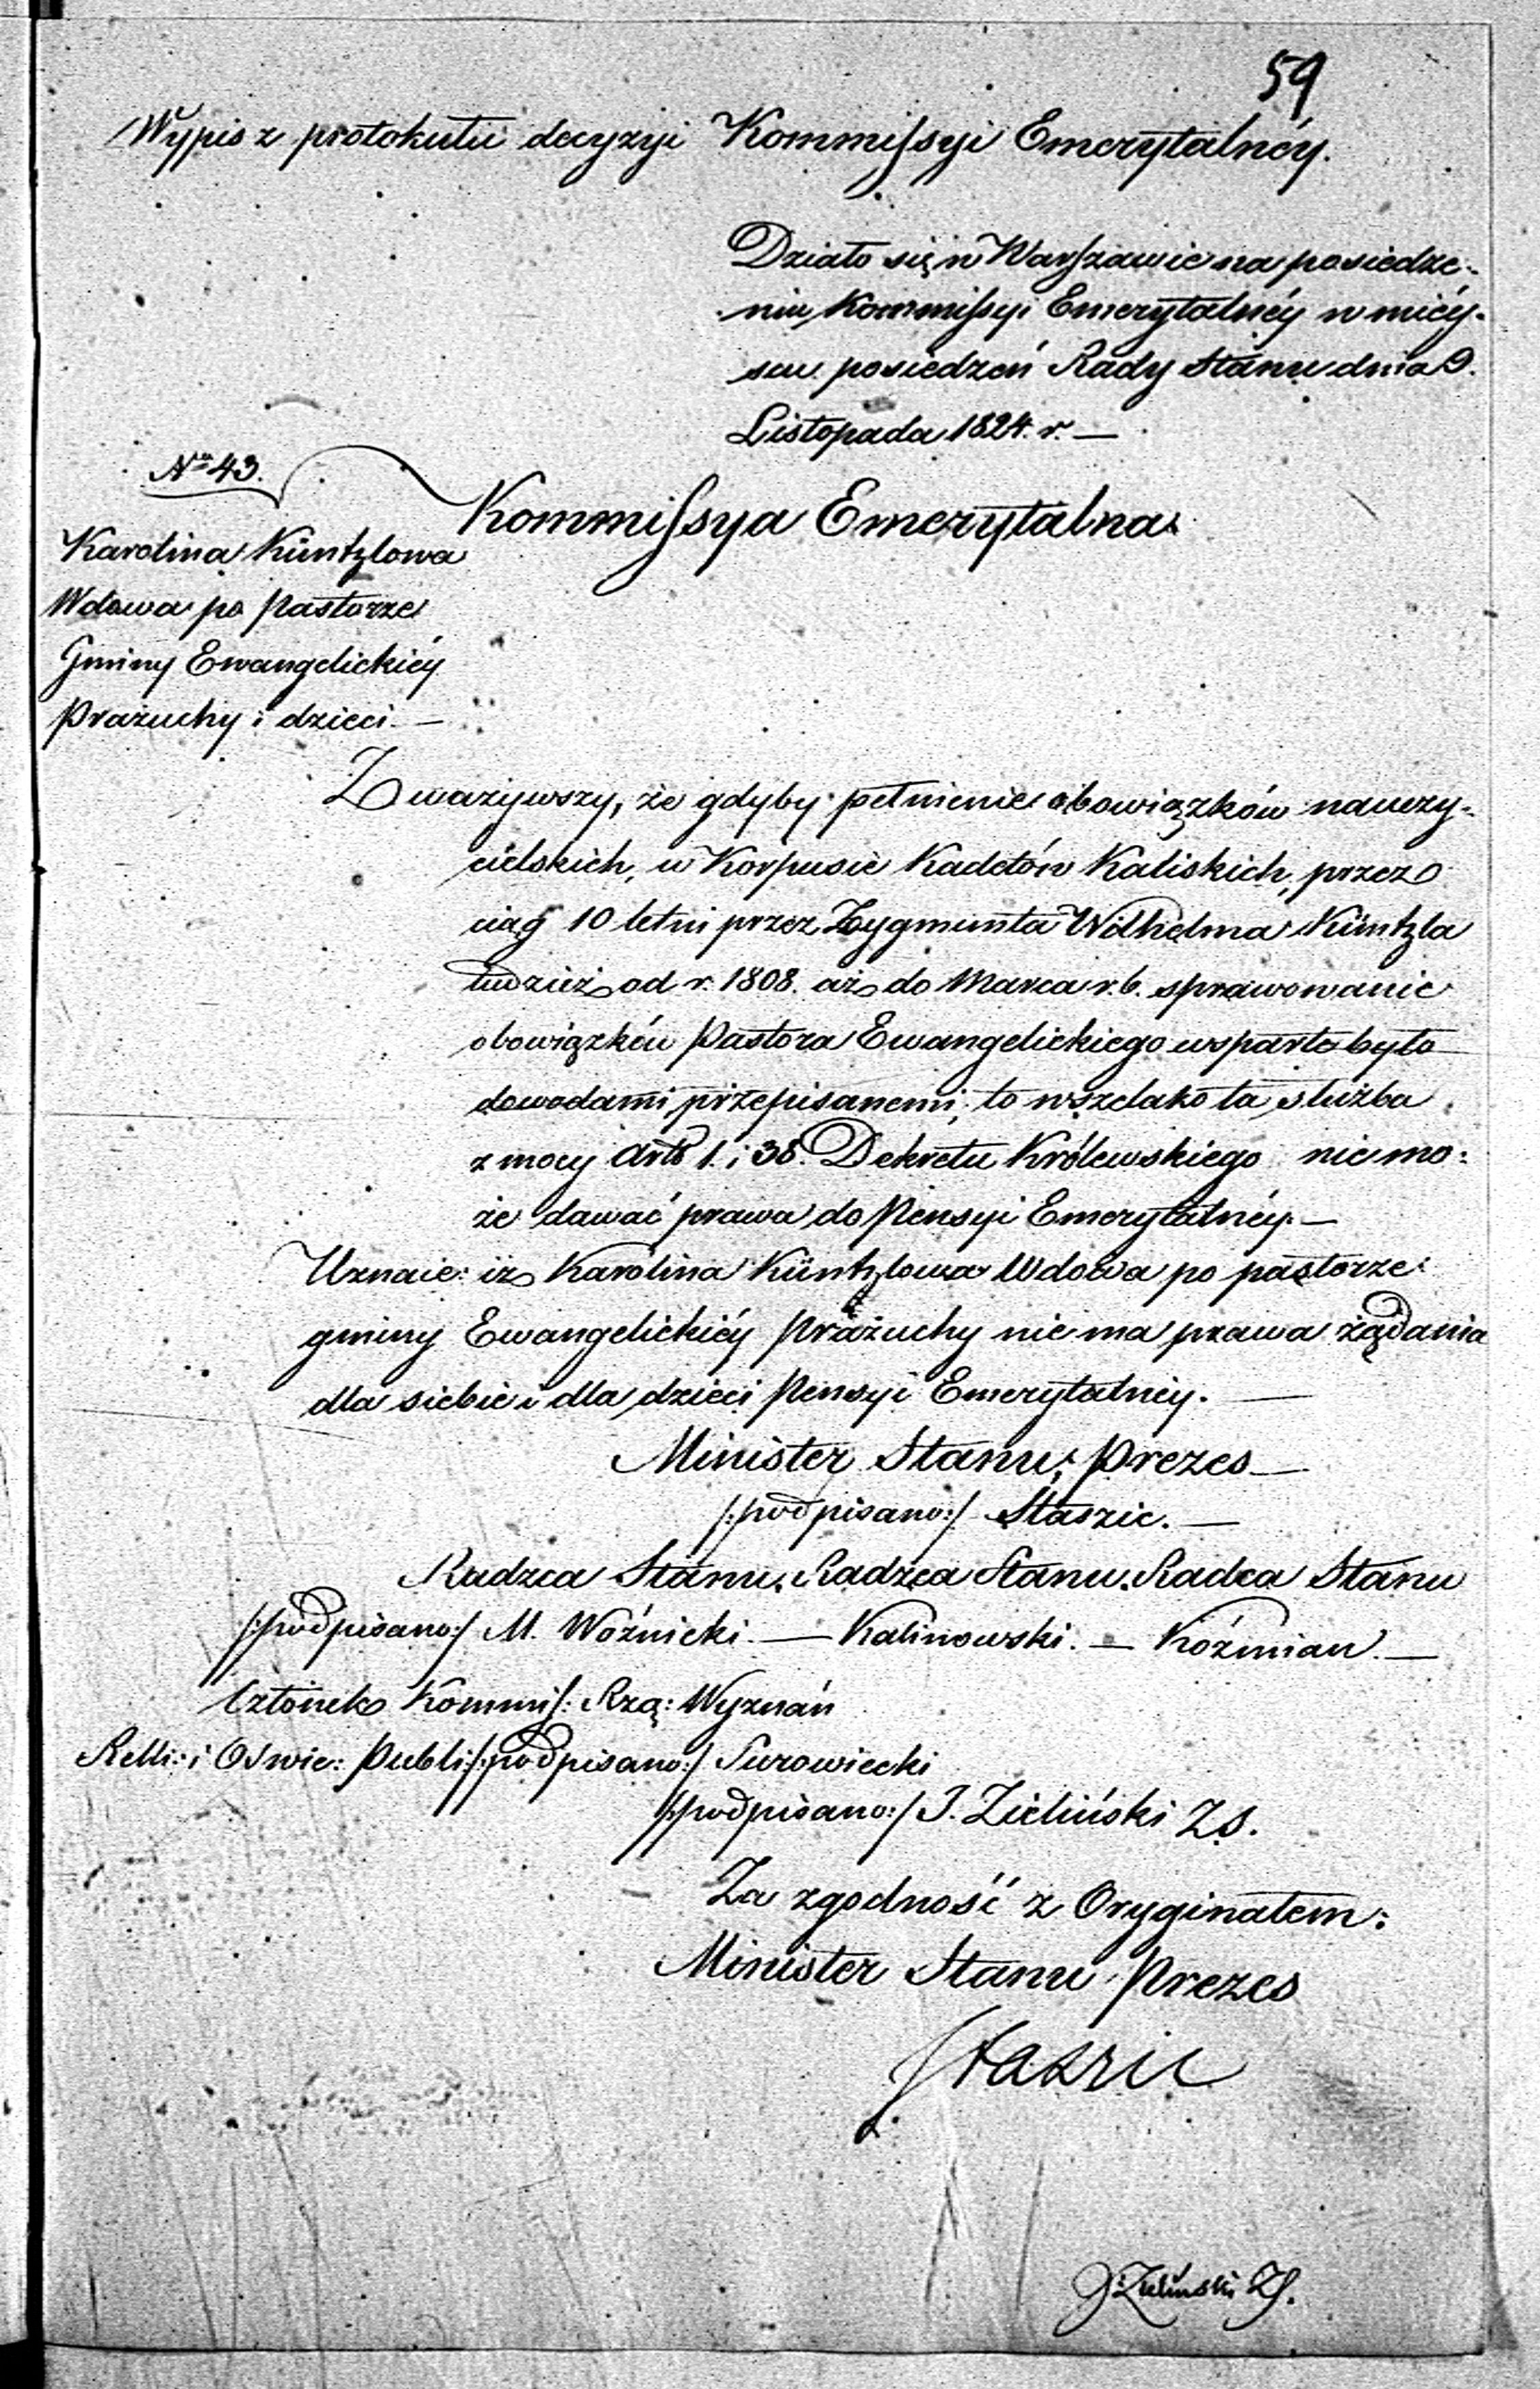 59
Wypis z protokułu decyzyi Kommissyi Emerytalnéy.
Działo się w Warszawie na posiedze-
niu Kommissyi Emerytalnéy w miéy-
scu posiedzeń Rady Stanu dnia 9.
Listopada 1824. r. —
Nro 43.
Kommissya Emerytalna
Karolina Küntzlowa
Wdowa po Pastorze
Gminy Ewangelickiéy
Prażuchy i dzieci. —
Zważywszy, że gdyby pełnienie obowiązków nauczy-
cielskich, w Korpusie Kadetów Kaliskich, przez
ciąg 10 letni przez Zygmunta Wilhelma Küntzla
tudzież od r. 1808. aż do Marca r. b. sprawowanie
obowiązków Pastora Ewangelickiego wsparte było
dowodami przepisanemi, to wszelako ta służba
z mocy Artů 1. i 38. Dekretu Królewskiego nie mo-
że dawać prawa do Pensyi Emerytalnéy. —
Uznaie: iż Karolina Küntzlowa Wdowa po pastorze
gminy Ewangelickiéy Prażuchy nie ma prawa żądania
dla siebie i dla dzieci Pensyi Emerytalnéy. —
Minister Stanu, Prezes —
/:podpisano:/ Staszic. —
Radzca Stanu, Radzca Stanu, Radca Stanu
/:podpisano:/ M. Woźnicki. — Kalinowski. — Koźmian. —
Członek Kommis: Rzą: Wyznań
Relli: i Oświe: Publi: /:podpisano:/ Surowiecki
/:podpisano:/ J. Zieliński Z S.
Za zgodność z Oryginałem:
Minister Stanu Prezes
Staszic
J Zieliński ZS.